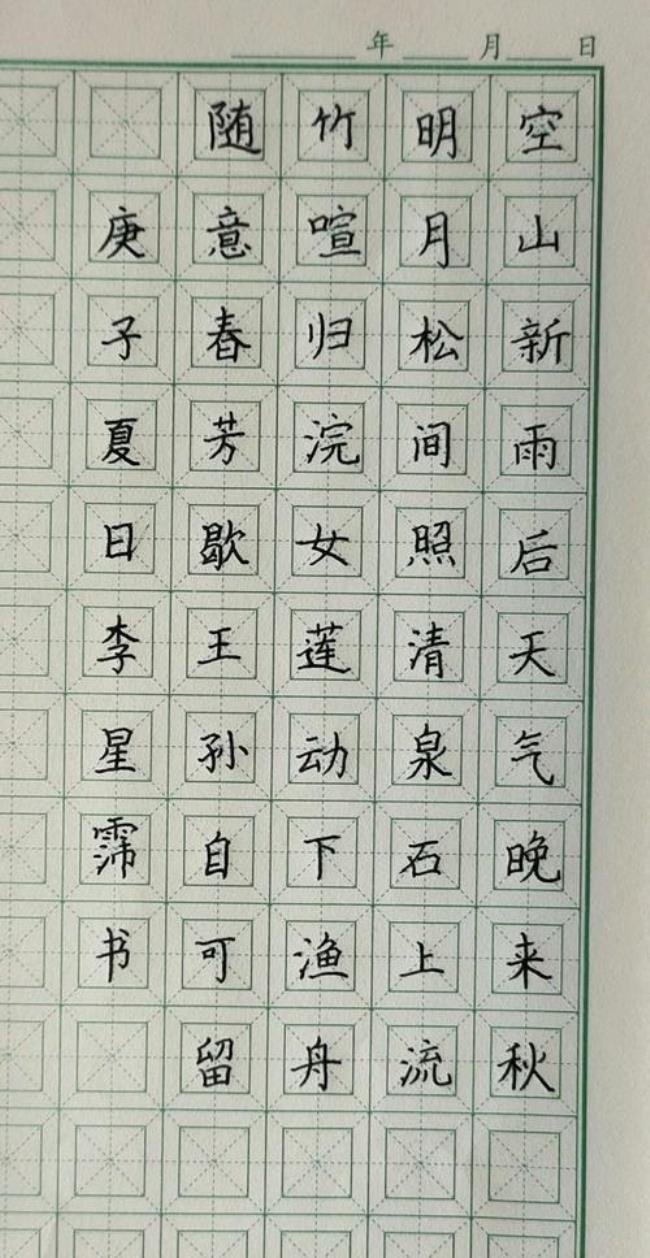 年 月 日
空山新雨后天气晚来秋
明月松间照清泉石上流
竹喧归浣女莲动下渔舟
随意春芳歇王孙自可留
庚子夏日李星霈书